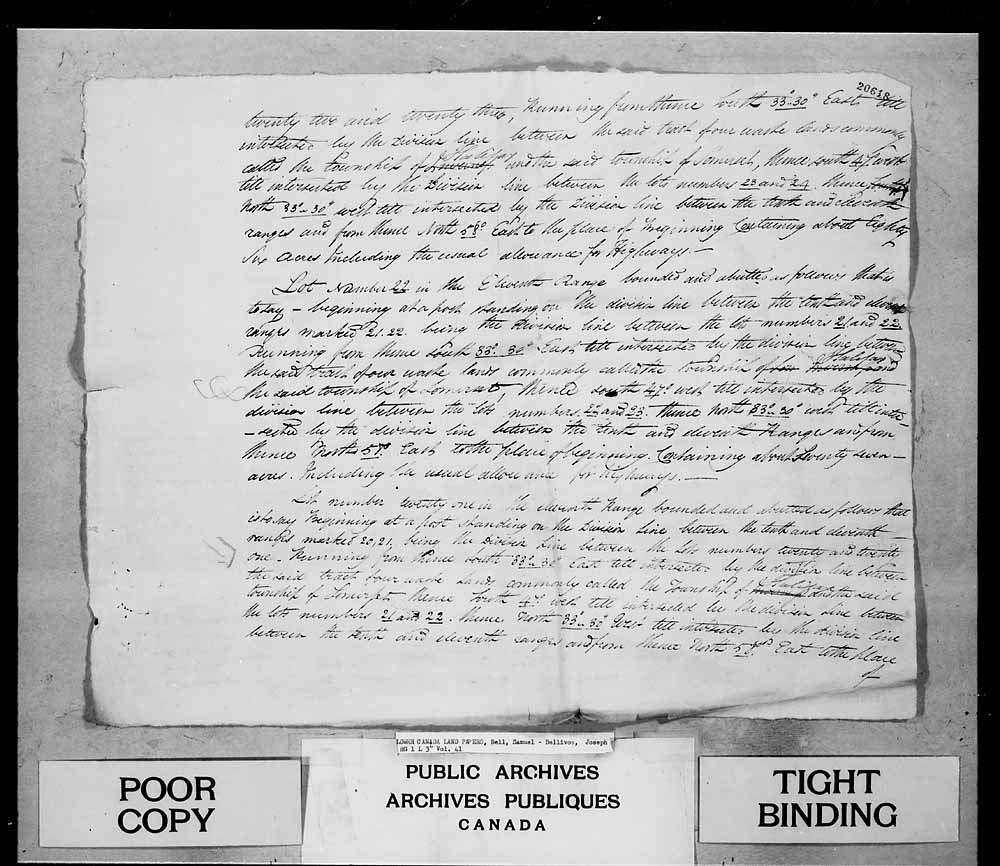 20618
twenty two and twenty three, Running from thence South 33°.30° East till
intersected by the Division line between the said tract of our waste lands commonly
called the Township of Halifax and the said township of Somerset, thence south 47° west
till intersected by the Division line between the lots numbers 23 and 24. thence
North 33°.30° west till intersected by the Division line between the tenth and eleventh
ranges and from thence North 58° East to the place of Beginning Containing about Eighty
Six Acres Including the usual allowance for Highways.—
Lot Number 22 in the Eleventh Range bounded and abutted as follows that is
to say – beginning at a post standing on the division line between the tenth and eleventh
ranges marked 21.22. being the Division line between the lots numbers 21 and 22.
Running from thence south 33°.30° East till intersected by the division line between
the said tract of our waste lands commonly called the Township of Halifax and
the said township of Somerset, thence south 47° west till intersected by the
division line between the lots numbers 22 and 23. thence North 33°.30° west till inter–
–sected by the division line between the tenth and eleventh Ranges and from
thence North 58° East to the place of beginning. Containing about Twenty seven–
acres. Including the usual allowance for highways.—
Lot number twenty one in the eleventh Range bounded and abutted as follows that
is to say Beginning at a post standing on the Division line between the tenth and eleventh
ranges marked 20, 21, being the Division line between the Lots numbers twenty and twenty
one. Running from thence south 33°.30 East till intersected by the division line between
the said tract of our waste Lands commonly called the Township of Halifax and the said
township of Somerset thence South 47° west till intersected by the division line between
the lots numbers 21 and 22. thence North 33°.30° West till intersected by the division line
between the tenth and eleventh ranges and from thence North 58° East to the place
of
LOWER CANADA LAND PAPERS, Bell, Samuel - Bellivos, Joseph
RG 1 L 3" Vol. 41
POOR
COPY
PUBLIC ARCHIVES
ARCHIVES PUBLIQUES
CANADA
TIGHT
BINDING